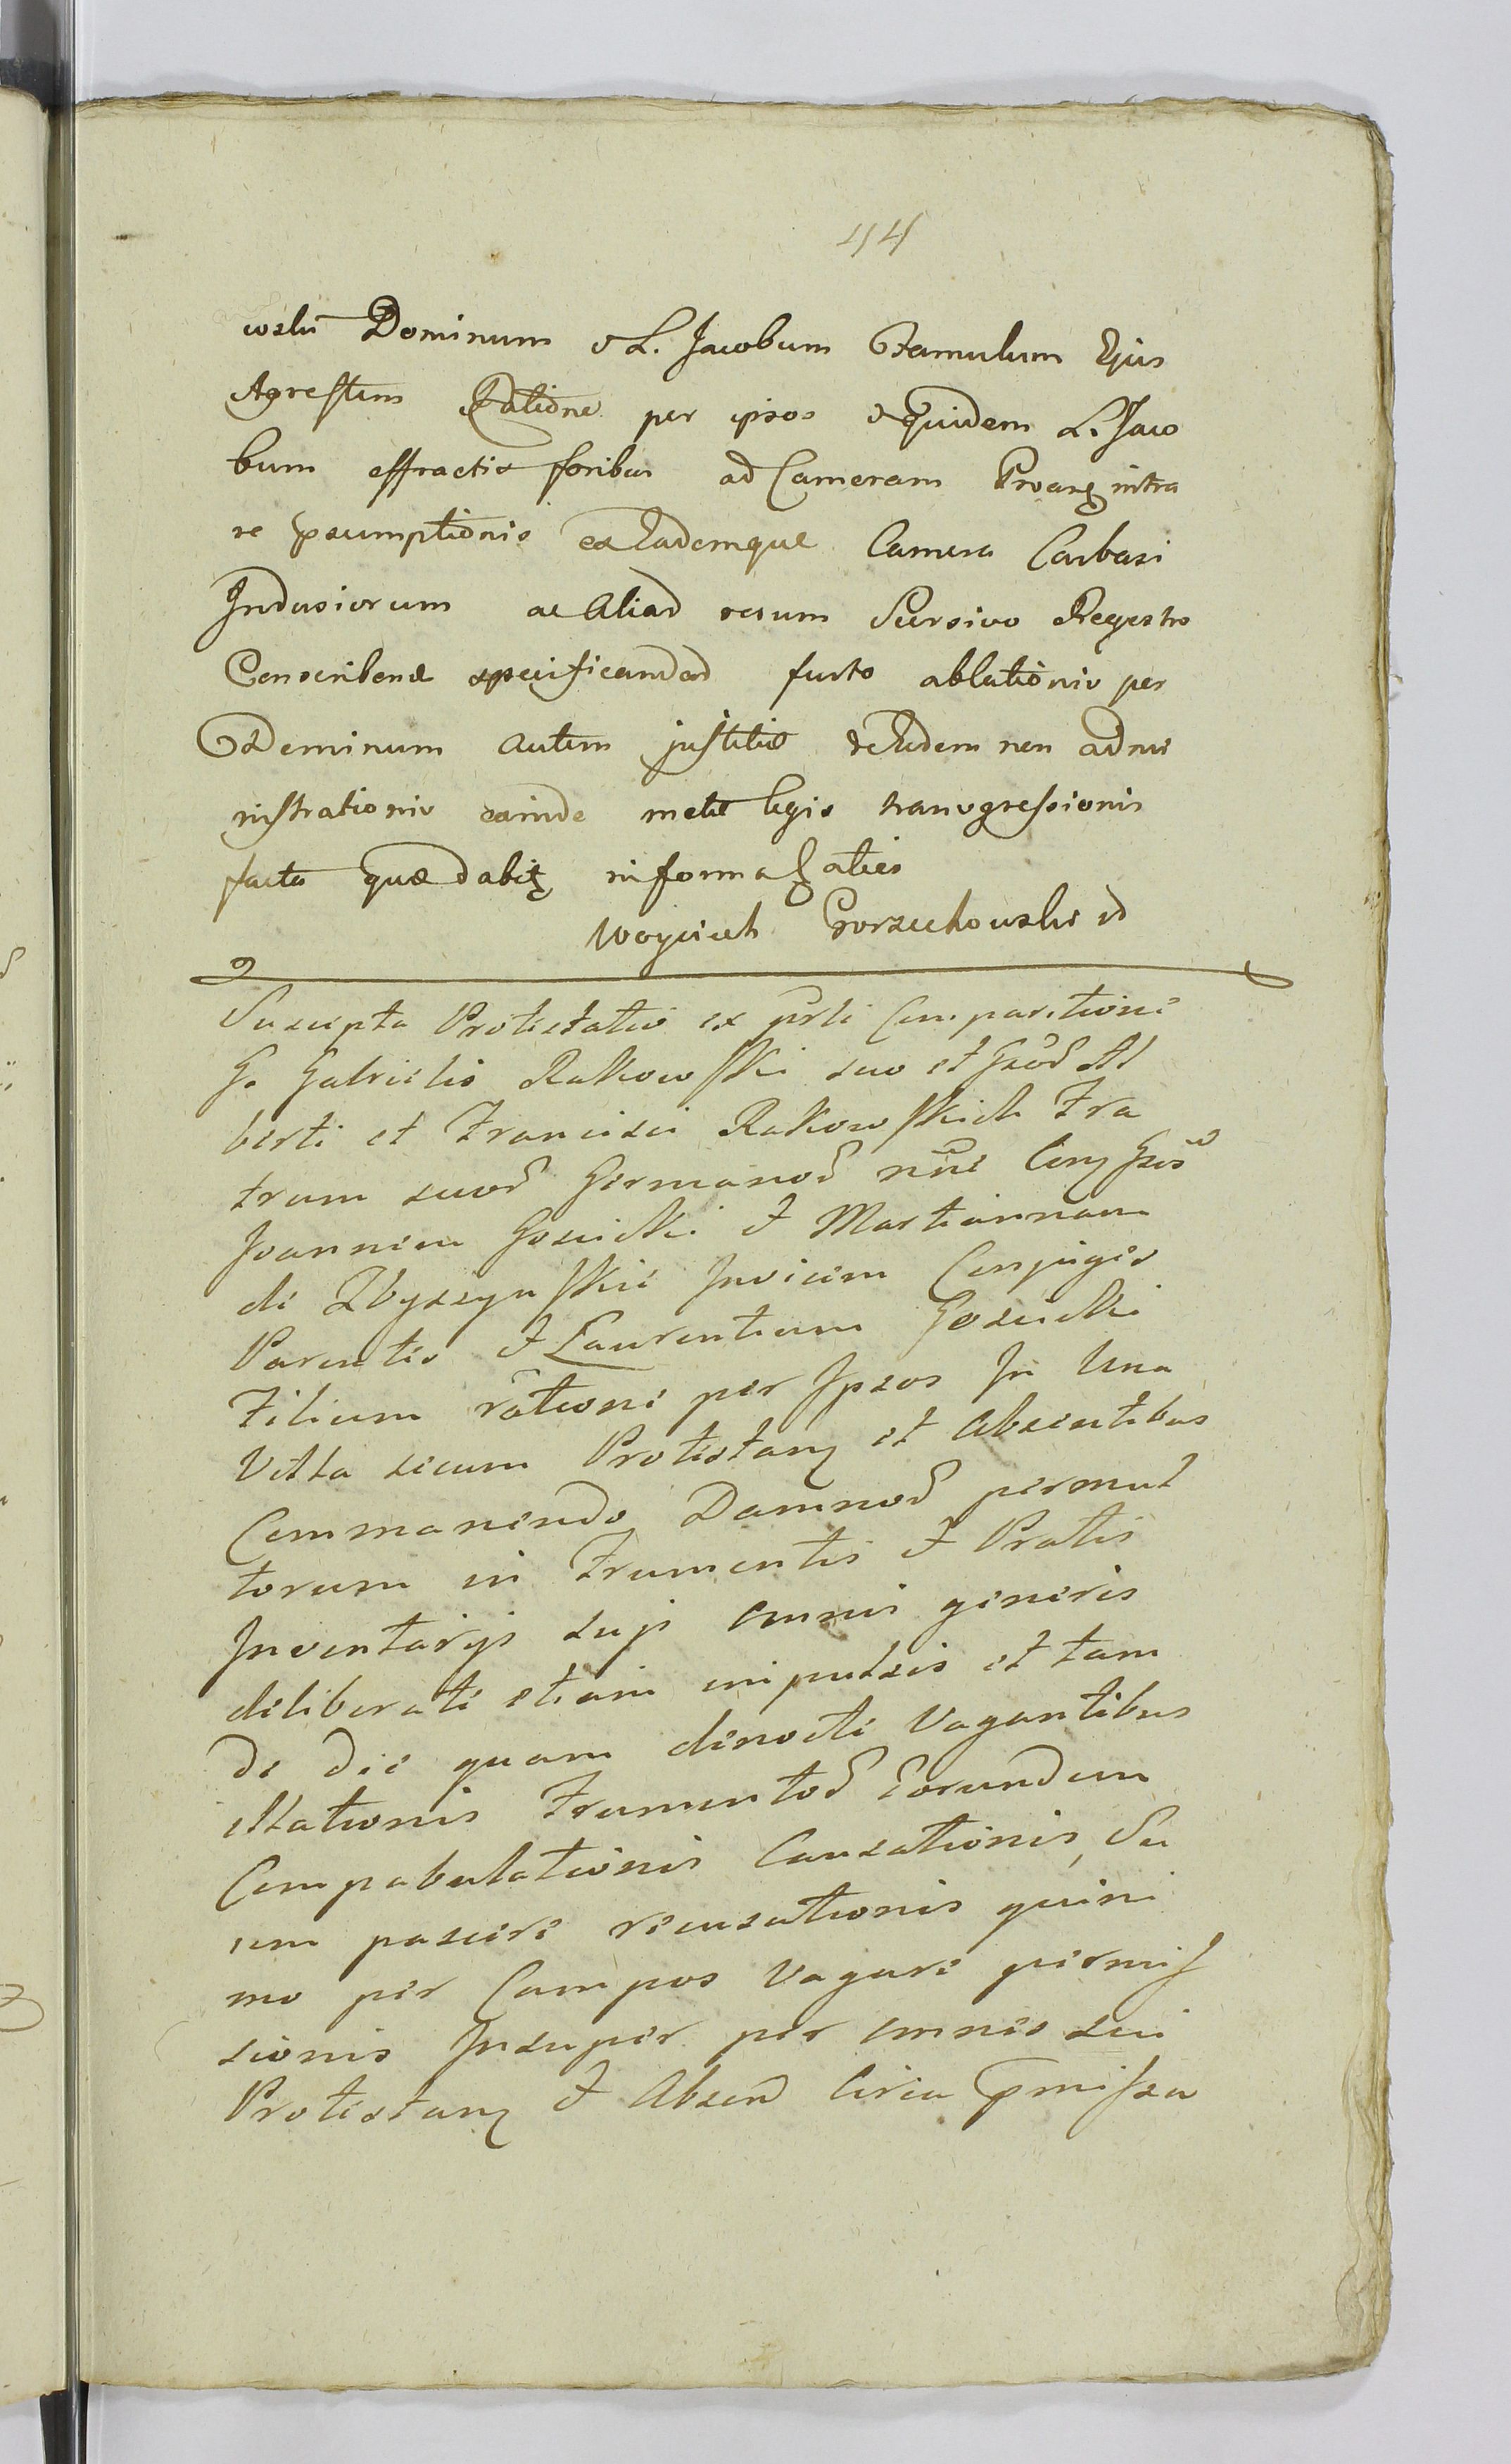 44
wski Dominum & L. Jacobum Famulum Ejus
Agrestem Ratione per ipsos & quidem L. Jaco
bum effractis foribus ad Cameram intra
re psumptionis ex Eademque Camera Carbasi
Indusiorum ac Aliad rerum Seorsivo Regestro
Conscribend specificandad furto ablationis per
Dominum autem justitiæ de Eodem non admi
nistrationis exinde metæ legis transgressionis
facta quæ dabitz in forma
Woyciech Gorzechowski

Suscepta Protestatio ex psti Comparitione
G. Gabrielis Rakowski suo et Gsod Al
berti et Francisci Rakowskich Fra
trum suod Germanod nne Conz Gsos
Joannem Gosicki & Mariannam
de Zbyszynskie Invicem Conjuges
Parentes & Laurentium Gosicki
Filium ratione per Ipsos In Una
Villa secum Protestanz et Absentibus
Commanendo Damnod permul
torum in Frumentis & Pratis
Inventarys suis omnis generis
deliberate etiam impulsis et tam
de die quam denocte Vagantibus
illationis Frumentod Eorundem
Compabulationis Causationis, Su
um pascere recusationis quini
mo per Campos Vagare permis
sionis Insuper per omnes sui
Protestanz & Absend Circa pmissa